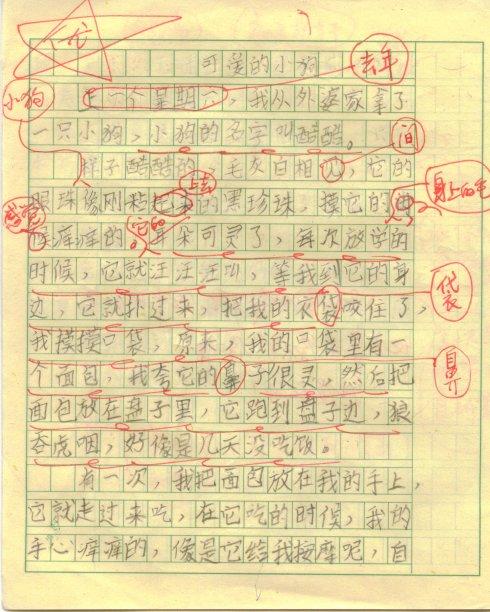 优
可爱的小狗
去年
小狗
上一个星期六，我从外婆家拿了
一只小狗，小狗的名字叫酷酷。
间
样子酷酷的，毛灰白相见，它的
上去
身上的毛
眼珠像刚粘起来的黑珍珠，摸它的
感觉
它的
候痒痒的。耳朵可灵了，每次放学的
时候，它就汪汪汪叫，等我到它的身
袋
边，它就扑过来，把我的衣袋咬住了，
我摸摸口袋，原来，我的口袋里有一
鼻
个面包，我夸它的鼻子很灵，然后把
面包放在盘子里，它跑到盘子边，狼
吞虎咽，好像是几天没吃饭。
有一次，我把面包放在我的手上，
它就走过来吃，在它吃的时候，我的
手心痒痒的，像是它给我按摩呢，自